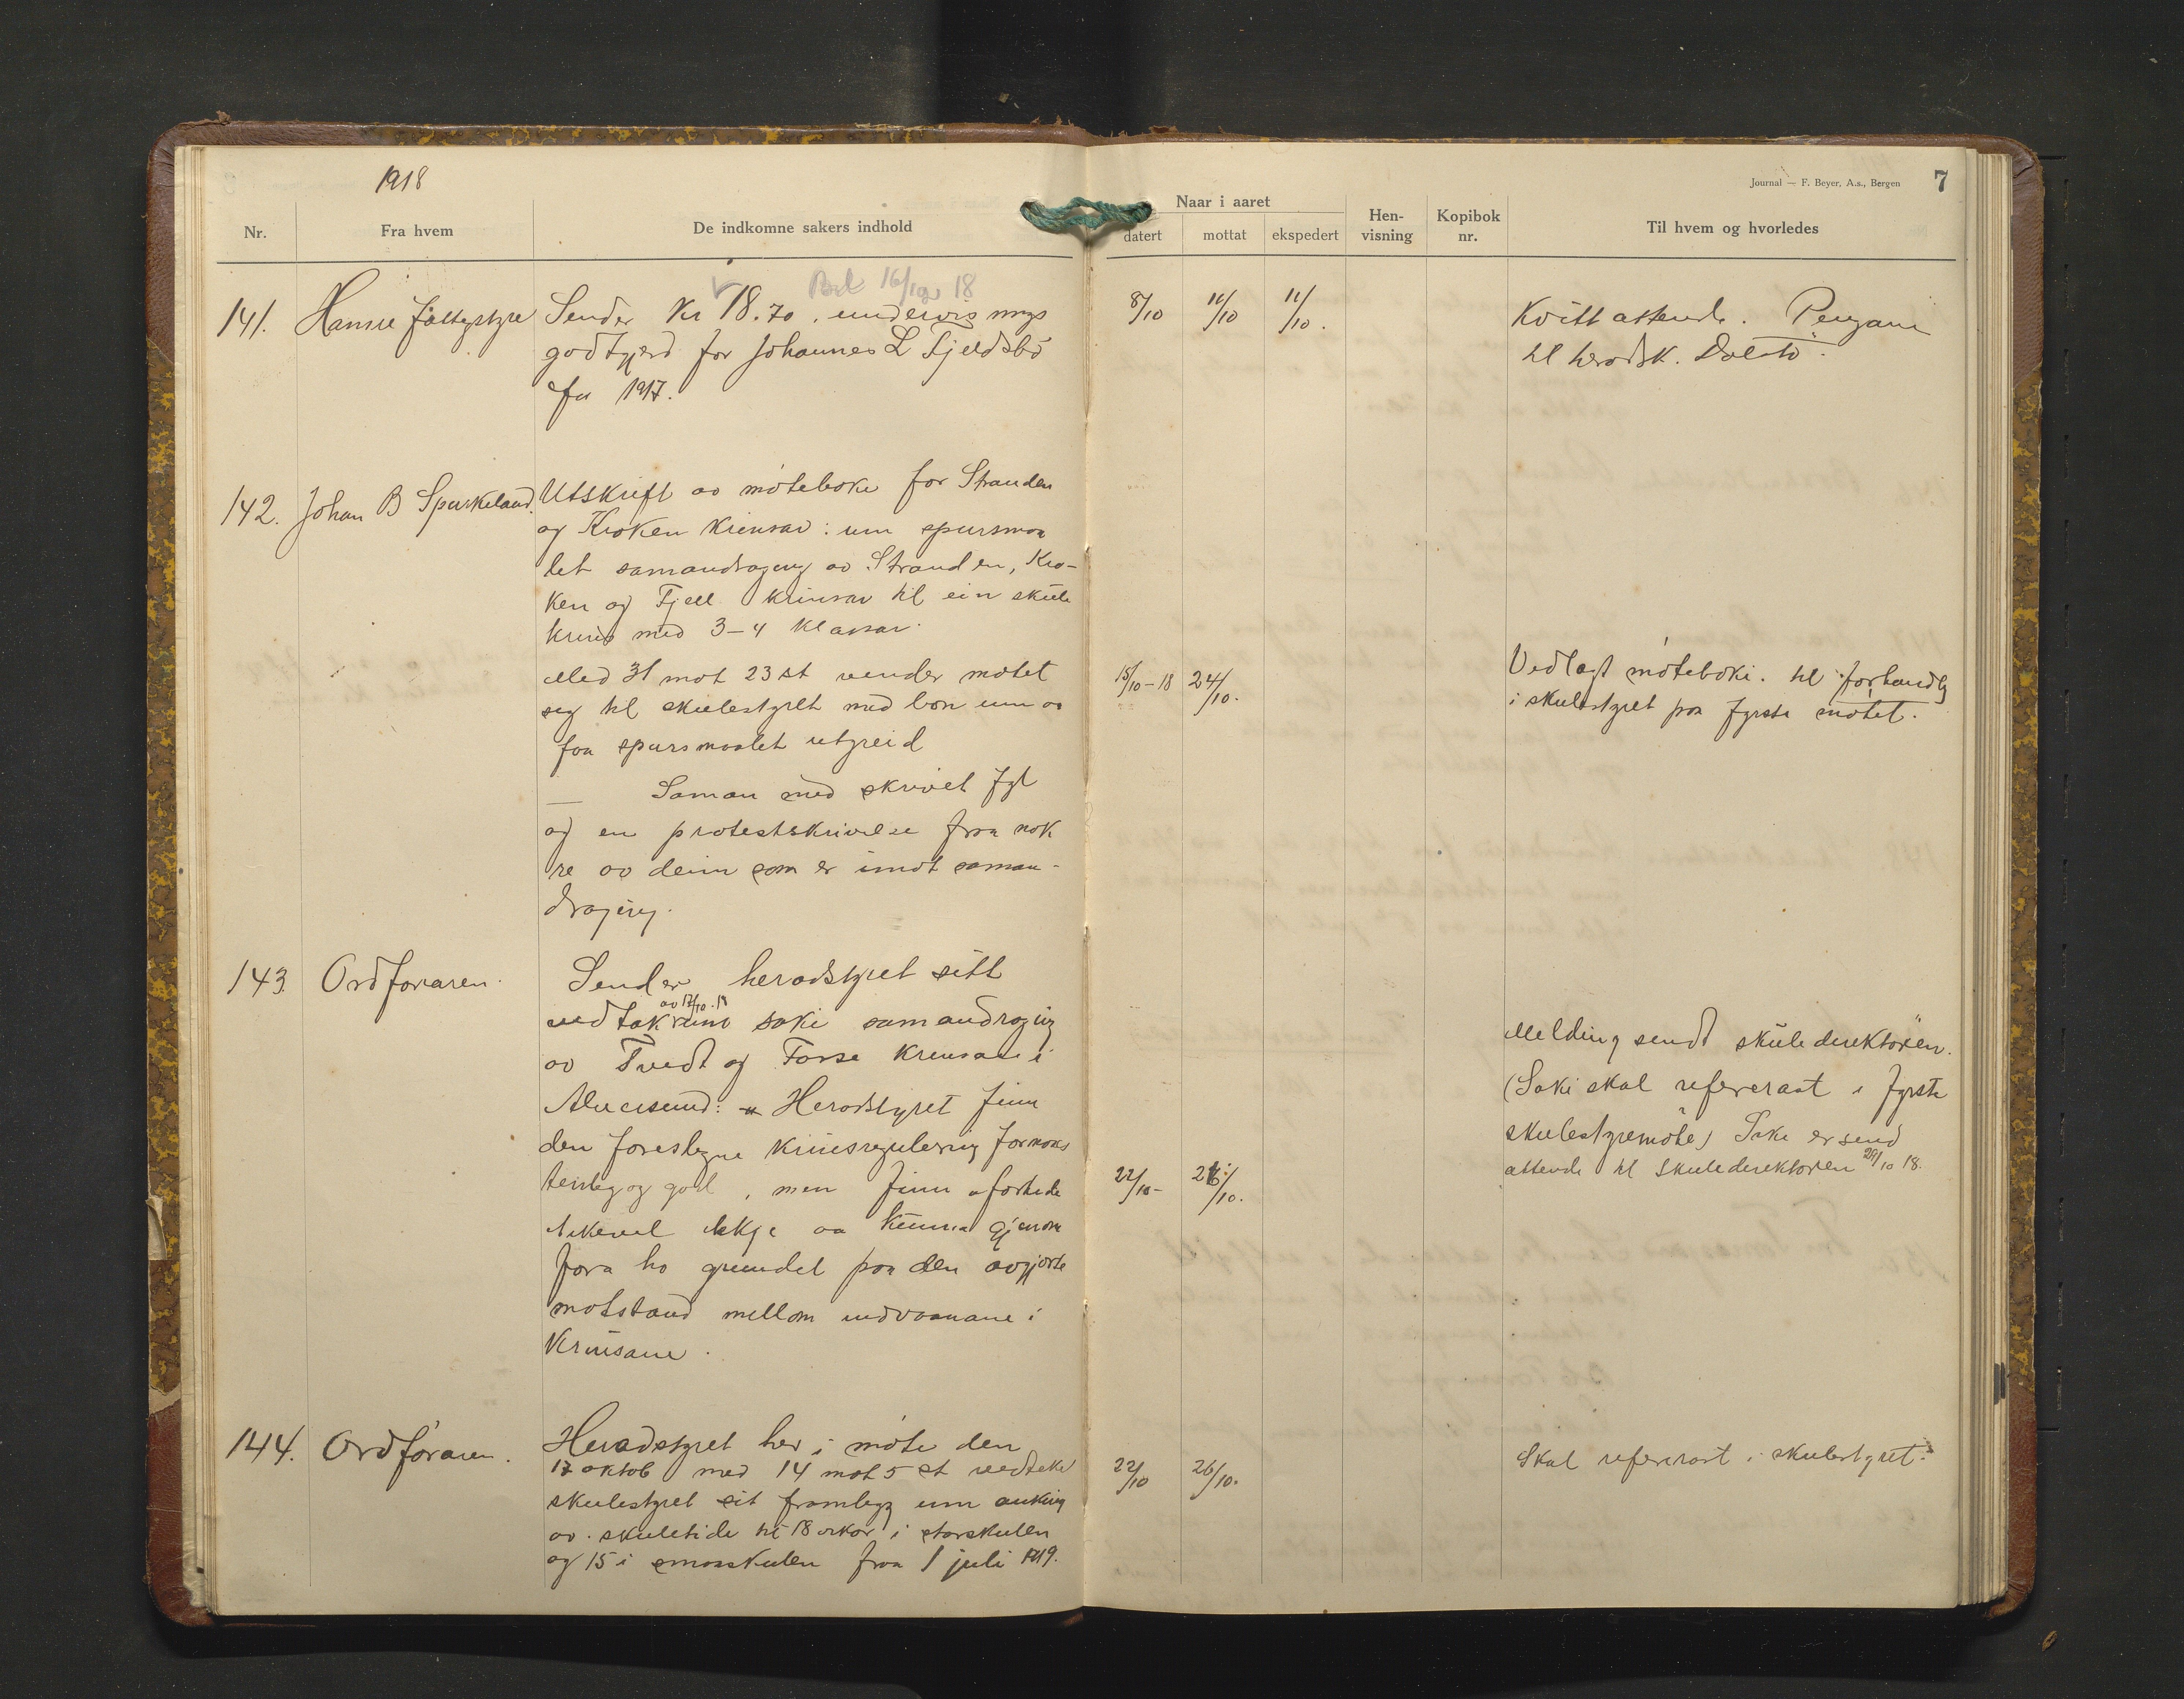 1918
Journal — F. Beyer, A.s., Bergen 7
Nr. Fra hvem De indkomne sakers indhold
Naar i aaret
datert mottat ekspedert
Hen-
visning
Kopibok
nr.
Til hvem og hvorledes
16/10 18
141. Hamre
Sender Kr 18.70. undervisnings
godtgjerd for Johannes L Fjeldsbö
for 1917.
8/10 11/10 11/10.
Kvitt attende. Pengane
til heradsk.
142. Johan B Spurkeland.
Utskrift av møteboki for Stranden
og Kroken krinsar: um spursmaa
let samandraging av Stranden, Kro-
ken og Fjell krinsar til ein skule
krins med 3-4 klassar.
Med 31 mot 23 st vender møtet
seg til skulestyret med bøn um aa
faa spursmaalet utgreid
— Saman med skrivet fyl
og en protestskrivelse fraa nok
re av deim som er imot saman-
draging.
15/10-18 24/10.
Vedlagt møteboki. til forhandlg
i skulestyret paa fyrste møtet.
143. Ordføraren.
Sender heradstyret sitt
av 17/10.18
vedtak i saki samandraging
av Tvedt og Fosse krinsane i
Alversund: Heradstyret finn
den foreslegne krinsregulering formaals
tenleg og god, men finn
likevel ikkje aa kunna gjenom
føra ho grundet paa den avgjorte
motstand mellom indvaanane i
Krinsane.
22/10- 26/10.
Melding sendt skuledirektøren.
(Saki skal refererast i fyrste
skulestyremøte) Saki er send
attende til Skuledirektøren 29/10 18.
144. Ordføraren.
Heradstyret her i møte den
17 oktob med 14 mot 5 st vedteke
skulestyret sit framlegg um auking
av skuletidi til 18 vikor i storskulen
og 15 i smaaskulen fraa 1 juli 1919.
22/10 26/10.
Skal refererast i skulestyret.